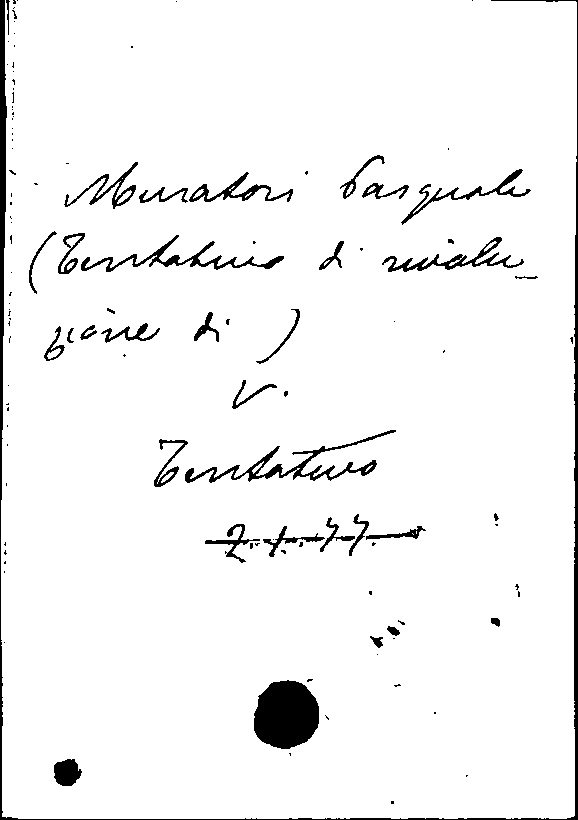 Muratori Pasquale
(Tentativo di rivolu_
zione di )
V.
Tentativo
2.1.77.